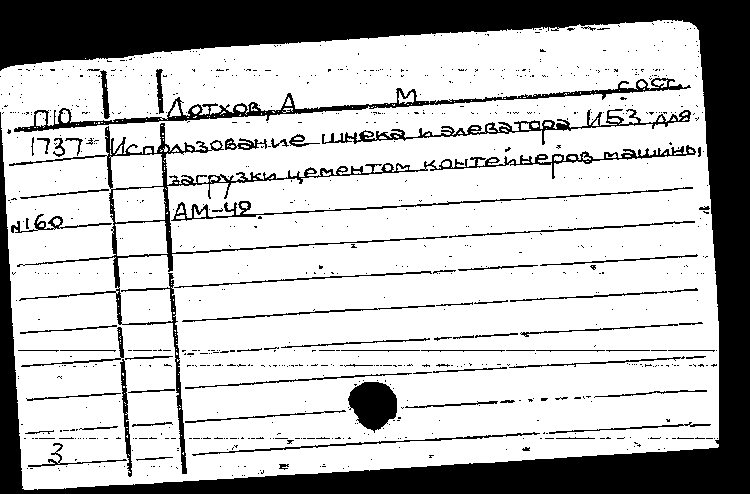 ПО Лотхов, А М , сост.
1737* Использование шнека и элеватора ИБЗ для
загрузки цементом контейнеров машины
№160 АМ-42.
3